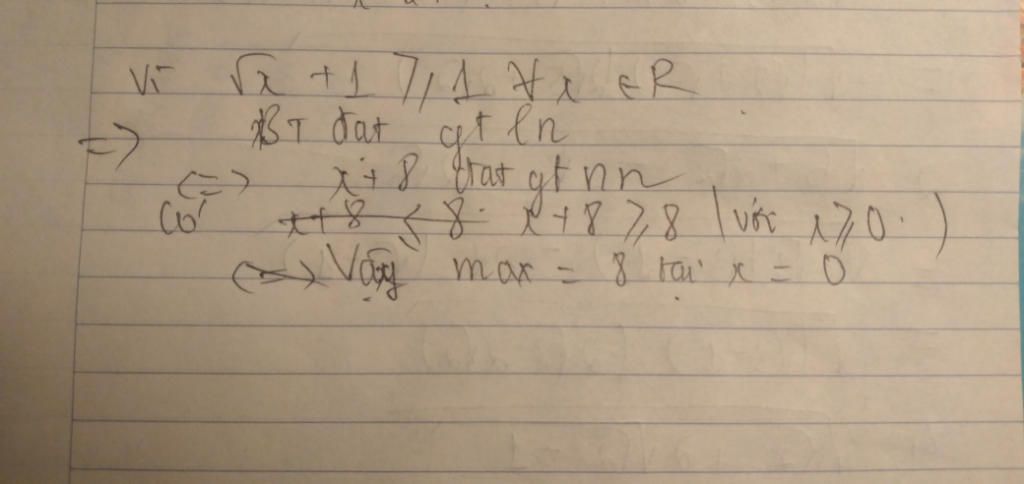 Vì √x + 1 ≥ 1 ∀x ∈ R
=> BT đạt gt ln
<=> x + 8 đạt gt nn
Có x + 8 ≤ 8 x + 8 ≥ 8 (với x ≥ 0)
<=> Vậy max = 8 tại x = 0